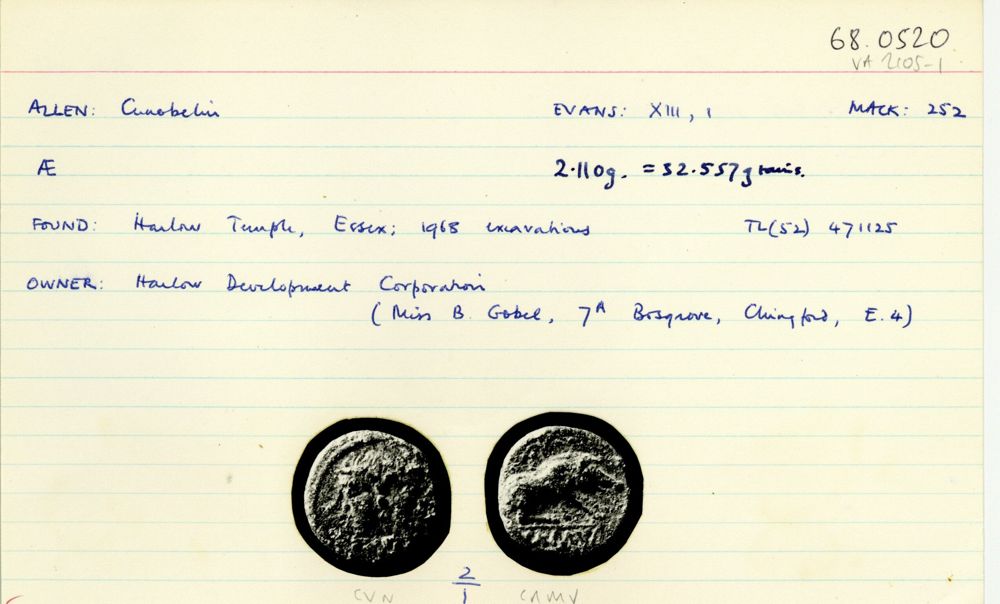 68.0520
VA 2105-1
ALLEN: Cunobelin EVANS: XIII, 1 MACK: 252
Æ 2.110g. = 32.557grains.
FOUND: Harlow Temple, Essex; 1968 excavations TL(52) 471125
OWNER: Harlow Development Corporation
(Miss B. Gobel, 7A Bosgrove, Chingford, E.4)
2
1
CVN CAMV